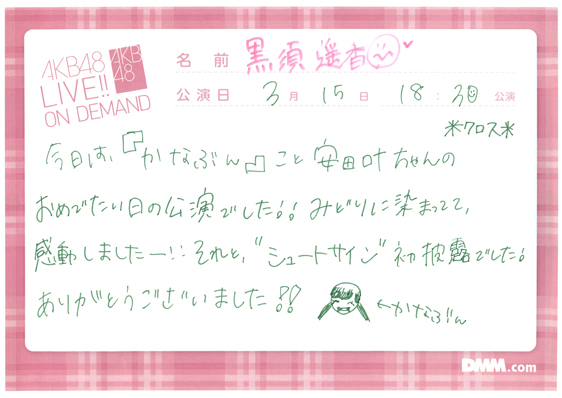 AKB48
LIVE!!
ON DEMAND
AKB
48
名前 黒須遥香
公演日 3月15日 18:30公演
*クロス*
今日は、『かなぶん』こと安田叶ちゃんの
おめでたい日の公演でした!! みどりに染まってて、
感動しましたー!! それと、"シュートサイン"初披露でした!
ありがとうございました!! ←かなぶん
DMM.com